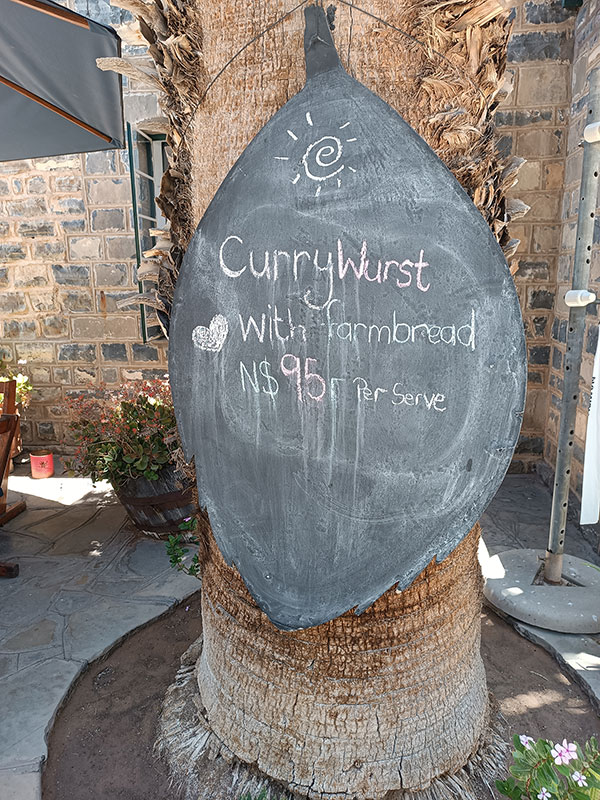 CurryWurst
with farmbread
N$95 Per Serve